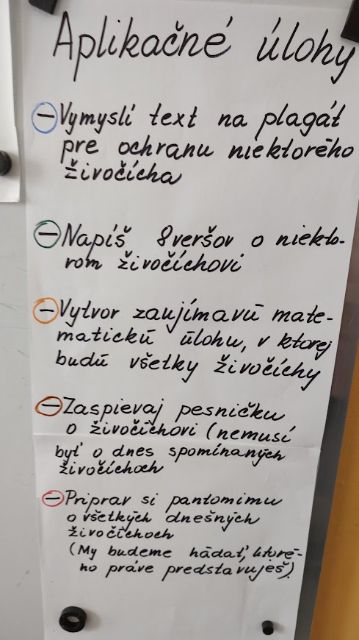 Aplikačné úlohy
- Vymysli text na plagát
pre ochranu niektorého
živočícha
- Napíš 8 veršov o niekto-
rom živočíchovi
- Vytvor zaujímavú mate-
matickú úlohu, v ktorej
budú všetky živočíchy
- Zaspievaj pesničku
o živočíchovi (nemusí
byť o dnes spomínaných
živočíchoch
- Priprav si pantomímu
o všetkých dnešných
živočíchoch
(My budeme hádať, ktoré-
ho práve predstavuješ).